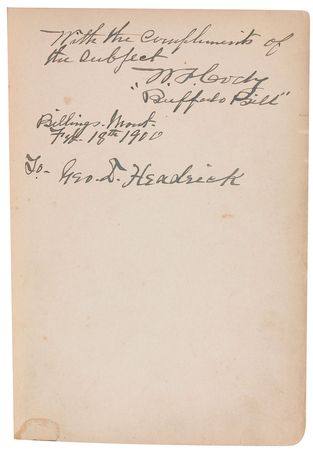 With the compliments of
the subject
W. F. Cody
"Buffalo Bill"
Billings. Mont.
18th 1900
To- Geo. T. Headrick